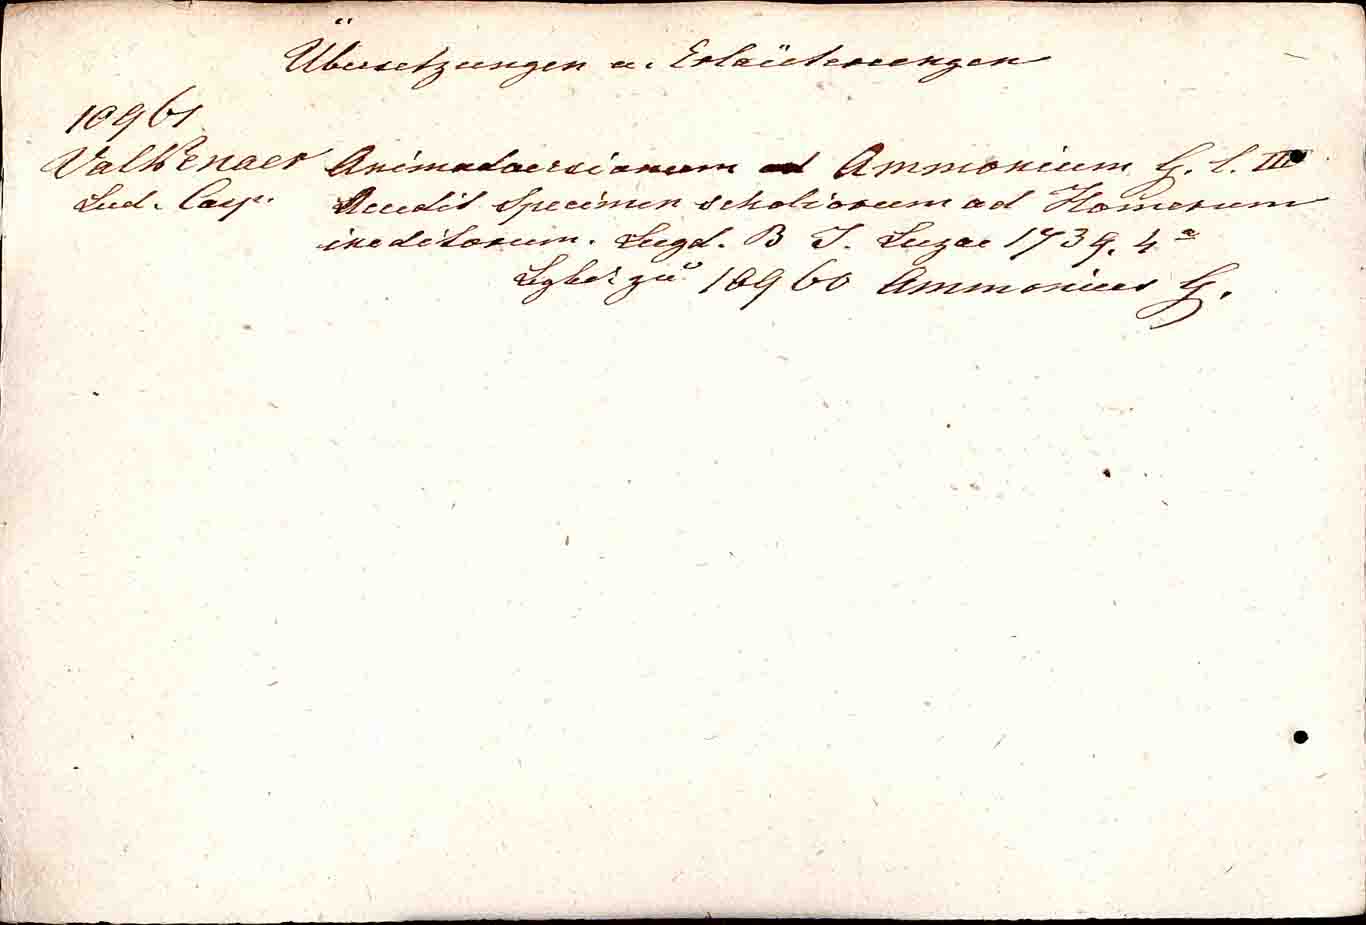 Übersetzungen u. Erläuterungen
10961
Valkenaer Animadversionum ad Ammonium G. l. III
Lud. Casp. Accedit Specimen scholiorum ad Homerum
ineditorum. Lugd. B J. Luzac 1739. 4°
10960 Ammonius G.